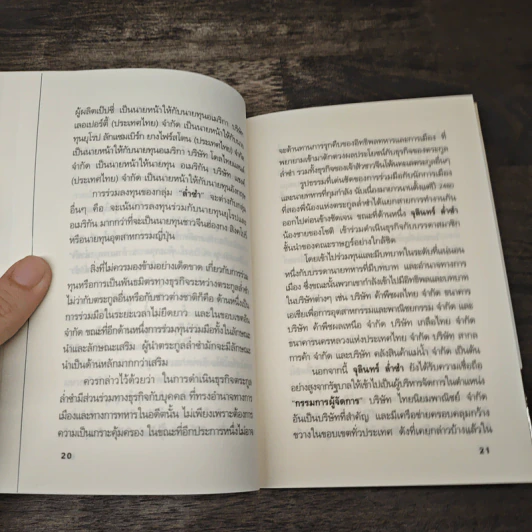 ผู้ผลิตเป๊ปซี่ เป็นนายหน้าให้กับนายทุนอเมริกา บริษัท
(ประเทศไทย) จำกัด เป็นนายหน้าให้กับ
ทุนยุโรป ลักแซมเบิร์ก ยางไฟร์สโตน (ประเทศไทย) จำกัด
เป็นนายหน้าให้กับนายทุนอเมริกา บริษัท
จำกัด เป็นนายหน้าให้นายทุน อเมริกัน บริษัท
(ประเทศไทย) จำกัด เป็นนายหน้าให้กับนายทุนอังกฤษ
การร่วมลงทุนของกลุ่ม "ล่ำซำ" จะต่างกับกลุ่ม
อื่นๆ คือ จะเน้นการลงทุนร่วมกับนายทุนยุโรปและ
อเมริกัน มากกว่าที่จะเป็นนายทุนชาวจีนฮ่องกง สิงคโปร์
หรือนายทุนอุตสาหกรรมญี่ปุ่น
สิ่งที่ไม่ควรมองข้ามอย่างเด็ดขาด เกี่ยวกับการร่วม
ทุนหรือการเป็นพันธมิตรทางธุรกิจระหว่างตระกูลล่ำซำ
ไม่ว่ากับตระกูลอื่นหรือกับชาวต่างชาติก็คือ ด้านหนึ่งเป็น
การร่วมมือในระยะเวลาไม่ยืดยาว และในขอบเขตอัน
จำกัด ขณะที่อีกด้านหนึ่งการร่วมทุนร่วมมือทั้งในลักษณะ
นำและลักษณะเสริม ผู้นำตระกูลล่ำซำมักจะมีลักษณะ
นำเป็นด้านหลักมากกว่าเสริม
ควรกล่าวไว้ด้วยว่า ในการดำเนินธุรกิจตระกูล
ล่ำซำมีส่วนร่วมทางธุรกิจกับบุคคล ที่ทรงอำนาจทางการ
เมืองและทางการทหารในอดีตนั้น ไม่เพียงเพราะต้องการ
ความเป็นเกราะคุ้มครอง ในขณะที่อีกประการหนึ่งไม่อาจ
20
จะต้านทานการรุกคืบของอิทธิพลทหารและการเมือง ที่
พยายามเข้ามาตักตวงผลประโยชน์กับธุรกิจของตระกูล
ล่ำซำ รวมทั้งธุรกิจของเจ้าสัวชาวจีนโพ้นทะเลตระกูลอื่นๆ
รูปธรรมที่เด่นชัดของการร่วมมือกับนักการเมือง
และนายทหารที่กุมกำลัง นับเนื่องมายาวนานตั้งแต่ปี
ที่สองพี่น้องแห่งตระกูลล่ำซำได้แยกสายการทำงานกัน
ออกไปค่อนข้างชัดเจน ขณะที่ด้านหนึ่ง จุลินทร์ ล่ำซำ
น้องชายของโชติ เข้าร่วมดำเนินธุรกิจกับบรรดาสมาชิก
ชั้นนำของคณะราษฎร์อย่างใกล้ชิด
โดยเข้าไปร่วมทุนและมีบทบาทในระดับที่แน่นอน
หนึ่งกับบรรดานายทหารที่มีบทบาท และอำนาจทางการ
เมือง ซึ่งขณะนั้นพวกเขากำลังเข้าไปมีอิทธิพลและบทบาท
ในบริษัทต่างๆ เช่น บริษัท ค้าพืชผลไทย จำกัด ธนาคาร
เอเชียเพื่อการอุตสาหกรรมและพาณิชยกรรม จำกัด และ
บริษัท ค้าพืชผลเหนือ จำกัด บริษัท เกลือไทย จำกัด
ธนาคารนครหลวงแห่งประเทศไทย จำกัด บริษัท สากล
การค้า จำกัด และบริษัท คลังสินค้าแม่น้ำ จำกัด เป็นต้น
นอกจากนี้ จุลินทร์ ล่ำซำ ยังได้รับความเชื่อถือ
อย่างสูงจากรัฐบาลให้เข้าไปเป็นผู้บริหารจัดการในตำแหน่ง
"กรรมการผู้จัดการ" บริษัท ไทยนิยมพาณิชย์ จำกัด
อันเป็นบริษัทที่สำคัญ และมีเครือข่ายครอบคลุมกว้าง
ขวางในขอบเขตทั่วประเทศ ดังที่เคยกล่าวบ้างแล้วใน
21